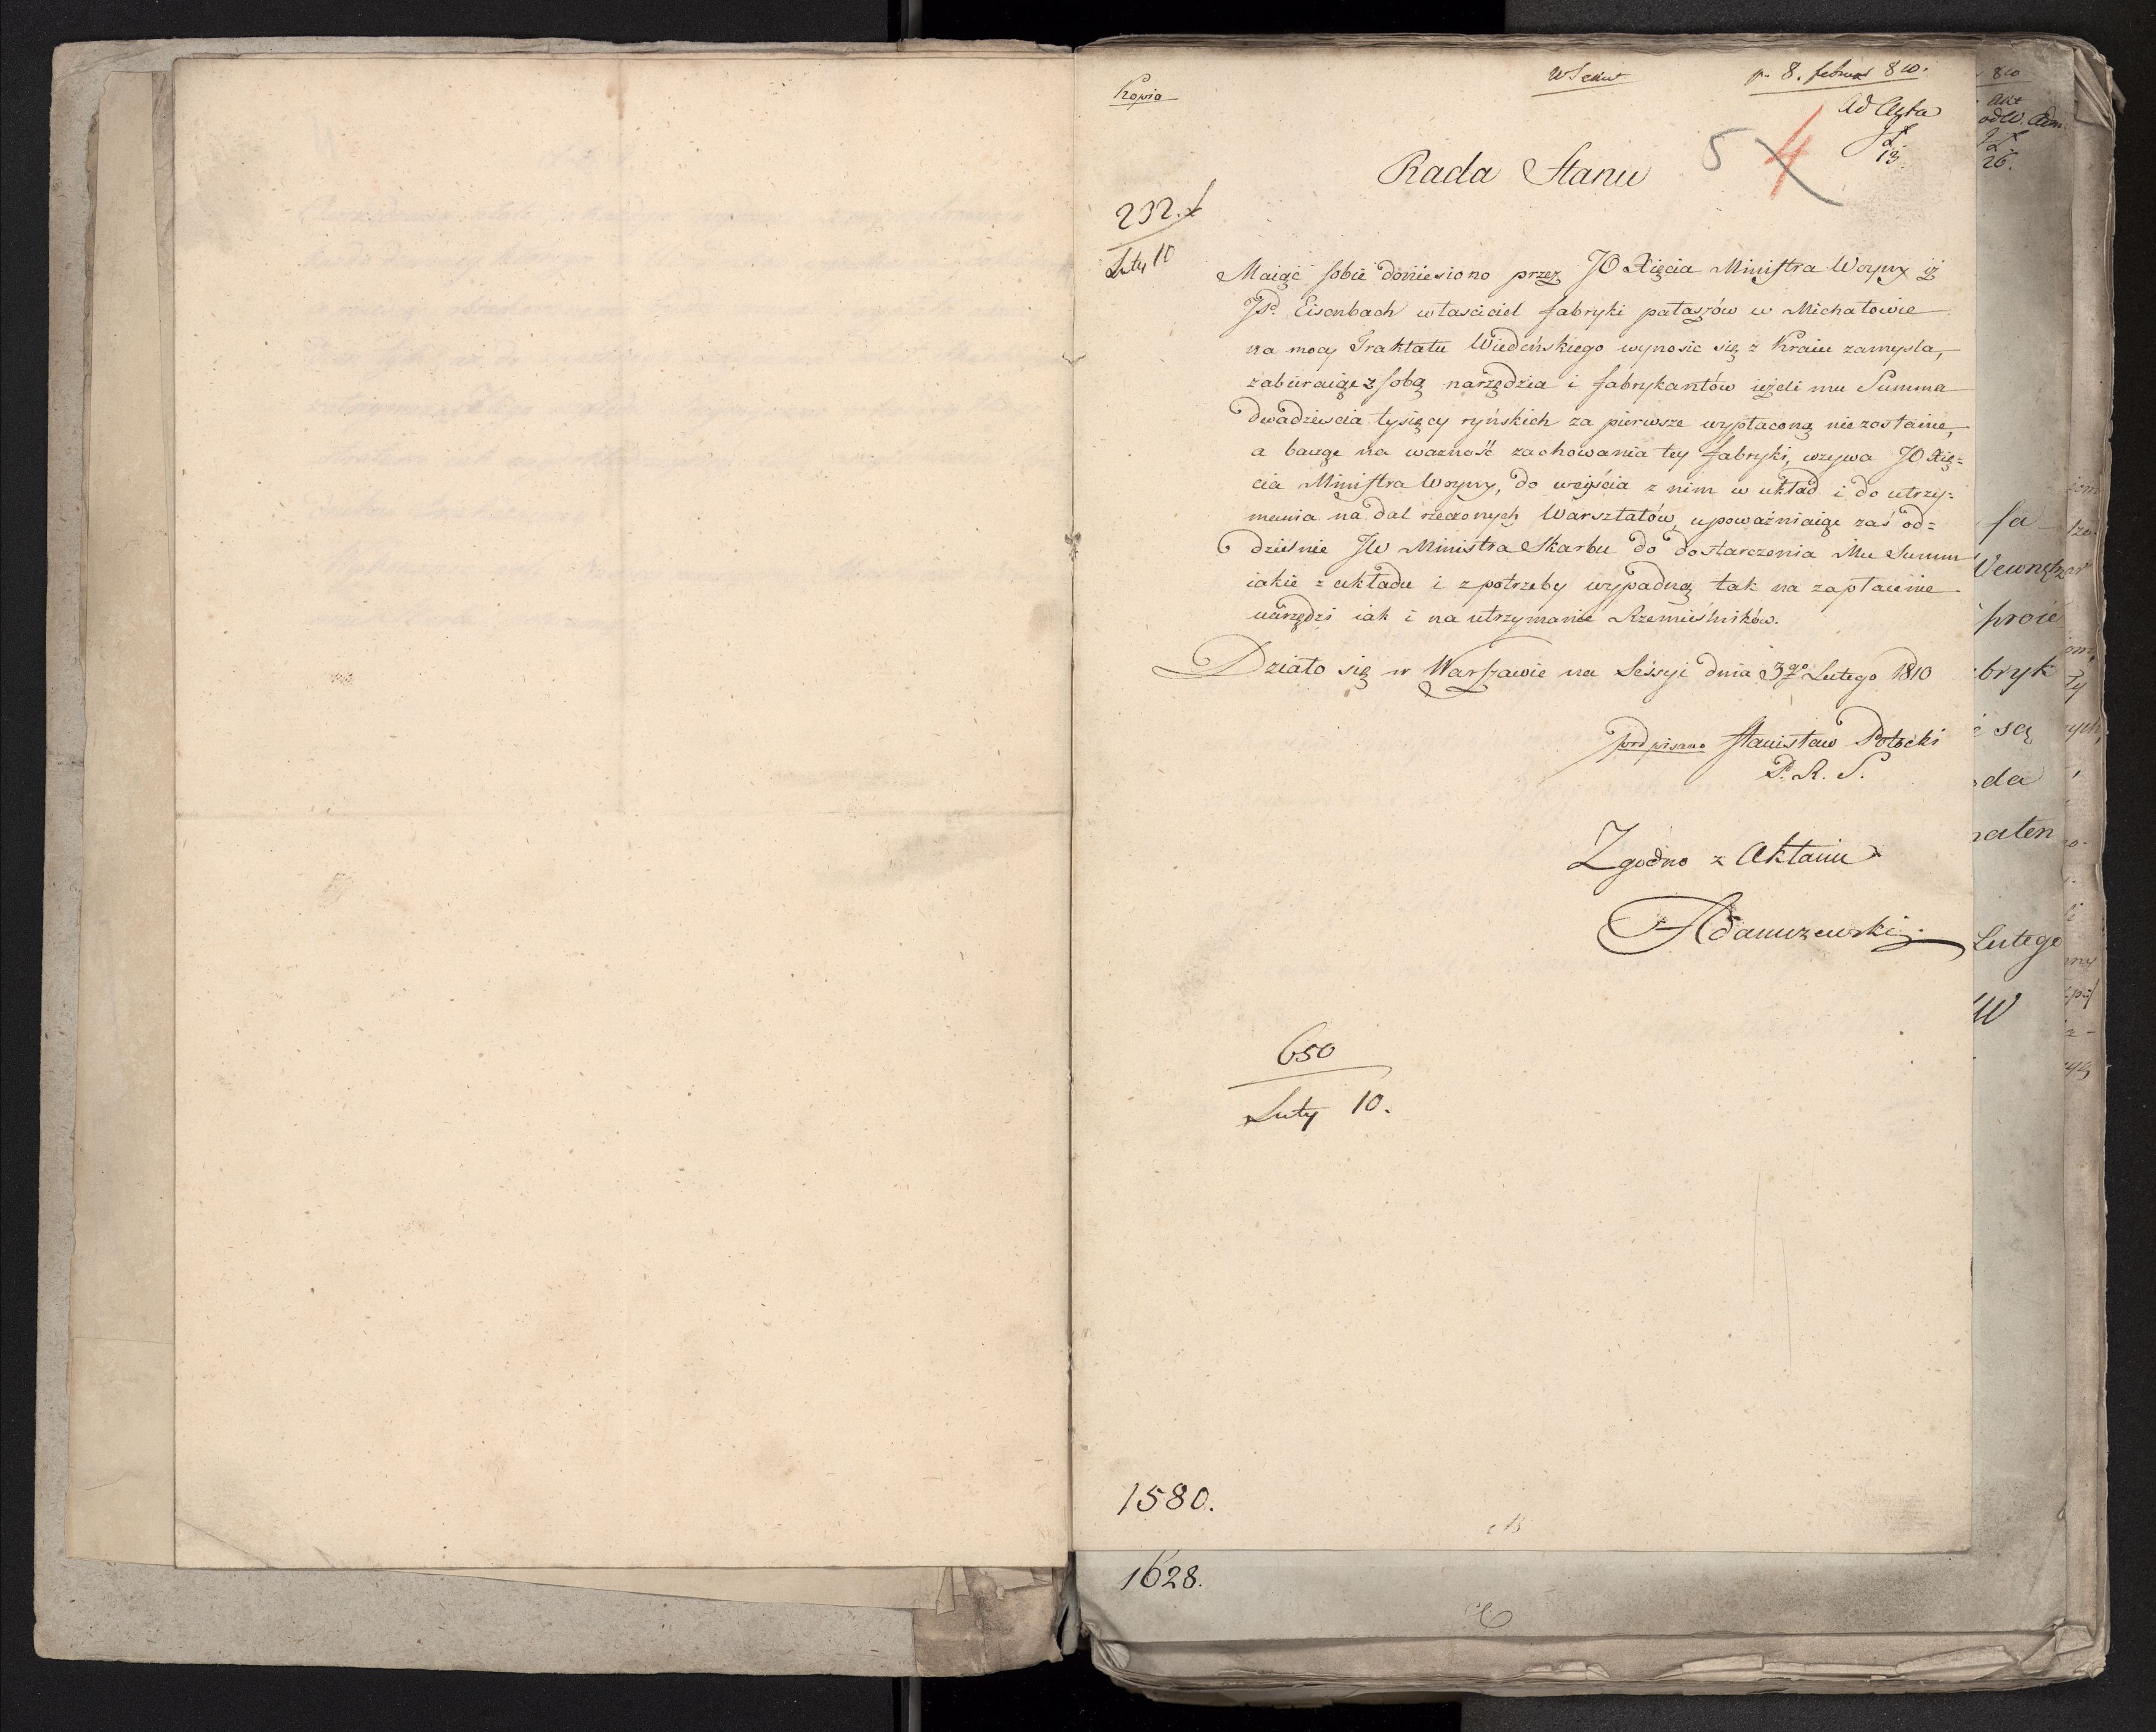 Kopia
p. 8. febru 810.
Ad Acta
13.
5 4
Rada Stanu
232.
Luty 10
Maiąc sobie doniesiono przez JO Xięcia Ministra Woyny iż
JP. Eisenbach właściciel fabryki pałaszów w Michałowie
na mocy Traktatu Wiedeńskiego wynosić się z Kraiu zamyśla,
zabieraiąc z sobą narzędzia i fabrykantów ieżeli mu Summa
dwadzieścia tysięcy ryńskich za pierwsze wypłaconą niezostanie,
a bacząc na ważność zachowania tey fabryki, wzywa JO Xię=
cia Ministra Woyny, do weyścia z nim w układ i do utrzy=
mania na dal rzeczonych Warsztatów, upoważniaiąc zaś od=
dzielnie JW Ministra Skarbu do dostarczenia Mu Summ
iakie z układu i z potrzeby wypadną tak na zapłacenie
narzędzi iak i na utrzymanie Rzemieślników.
Działo się w Warszawie na Sessyi dnia 3go Lutego 1810
podpisano Stanisław Potocki
P. R. S.
Zgodno z Aktami
650
Luty 10.
1580.
1628.
810
26.
fa
Wewnętr
proie
bryk
są
da
naten
Lutego